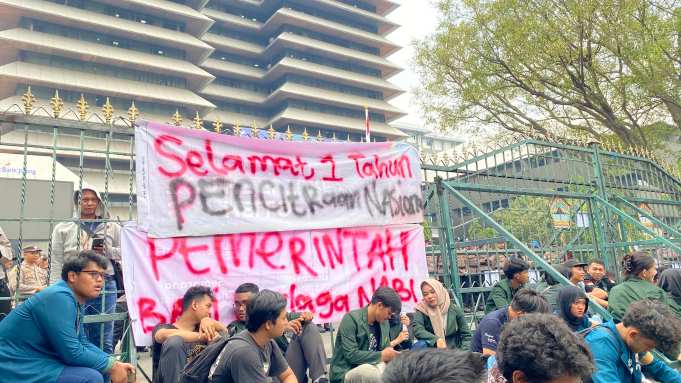 Selamat 1 Tahun
PENCITRAAN NASional
PEMERINTAH
laga NABI
Bank